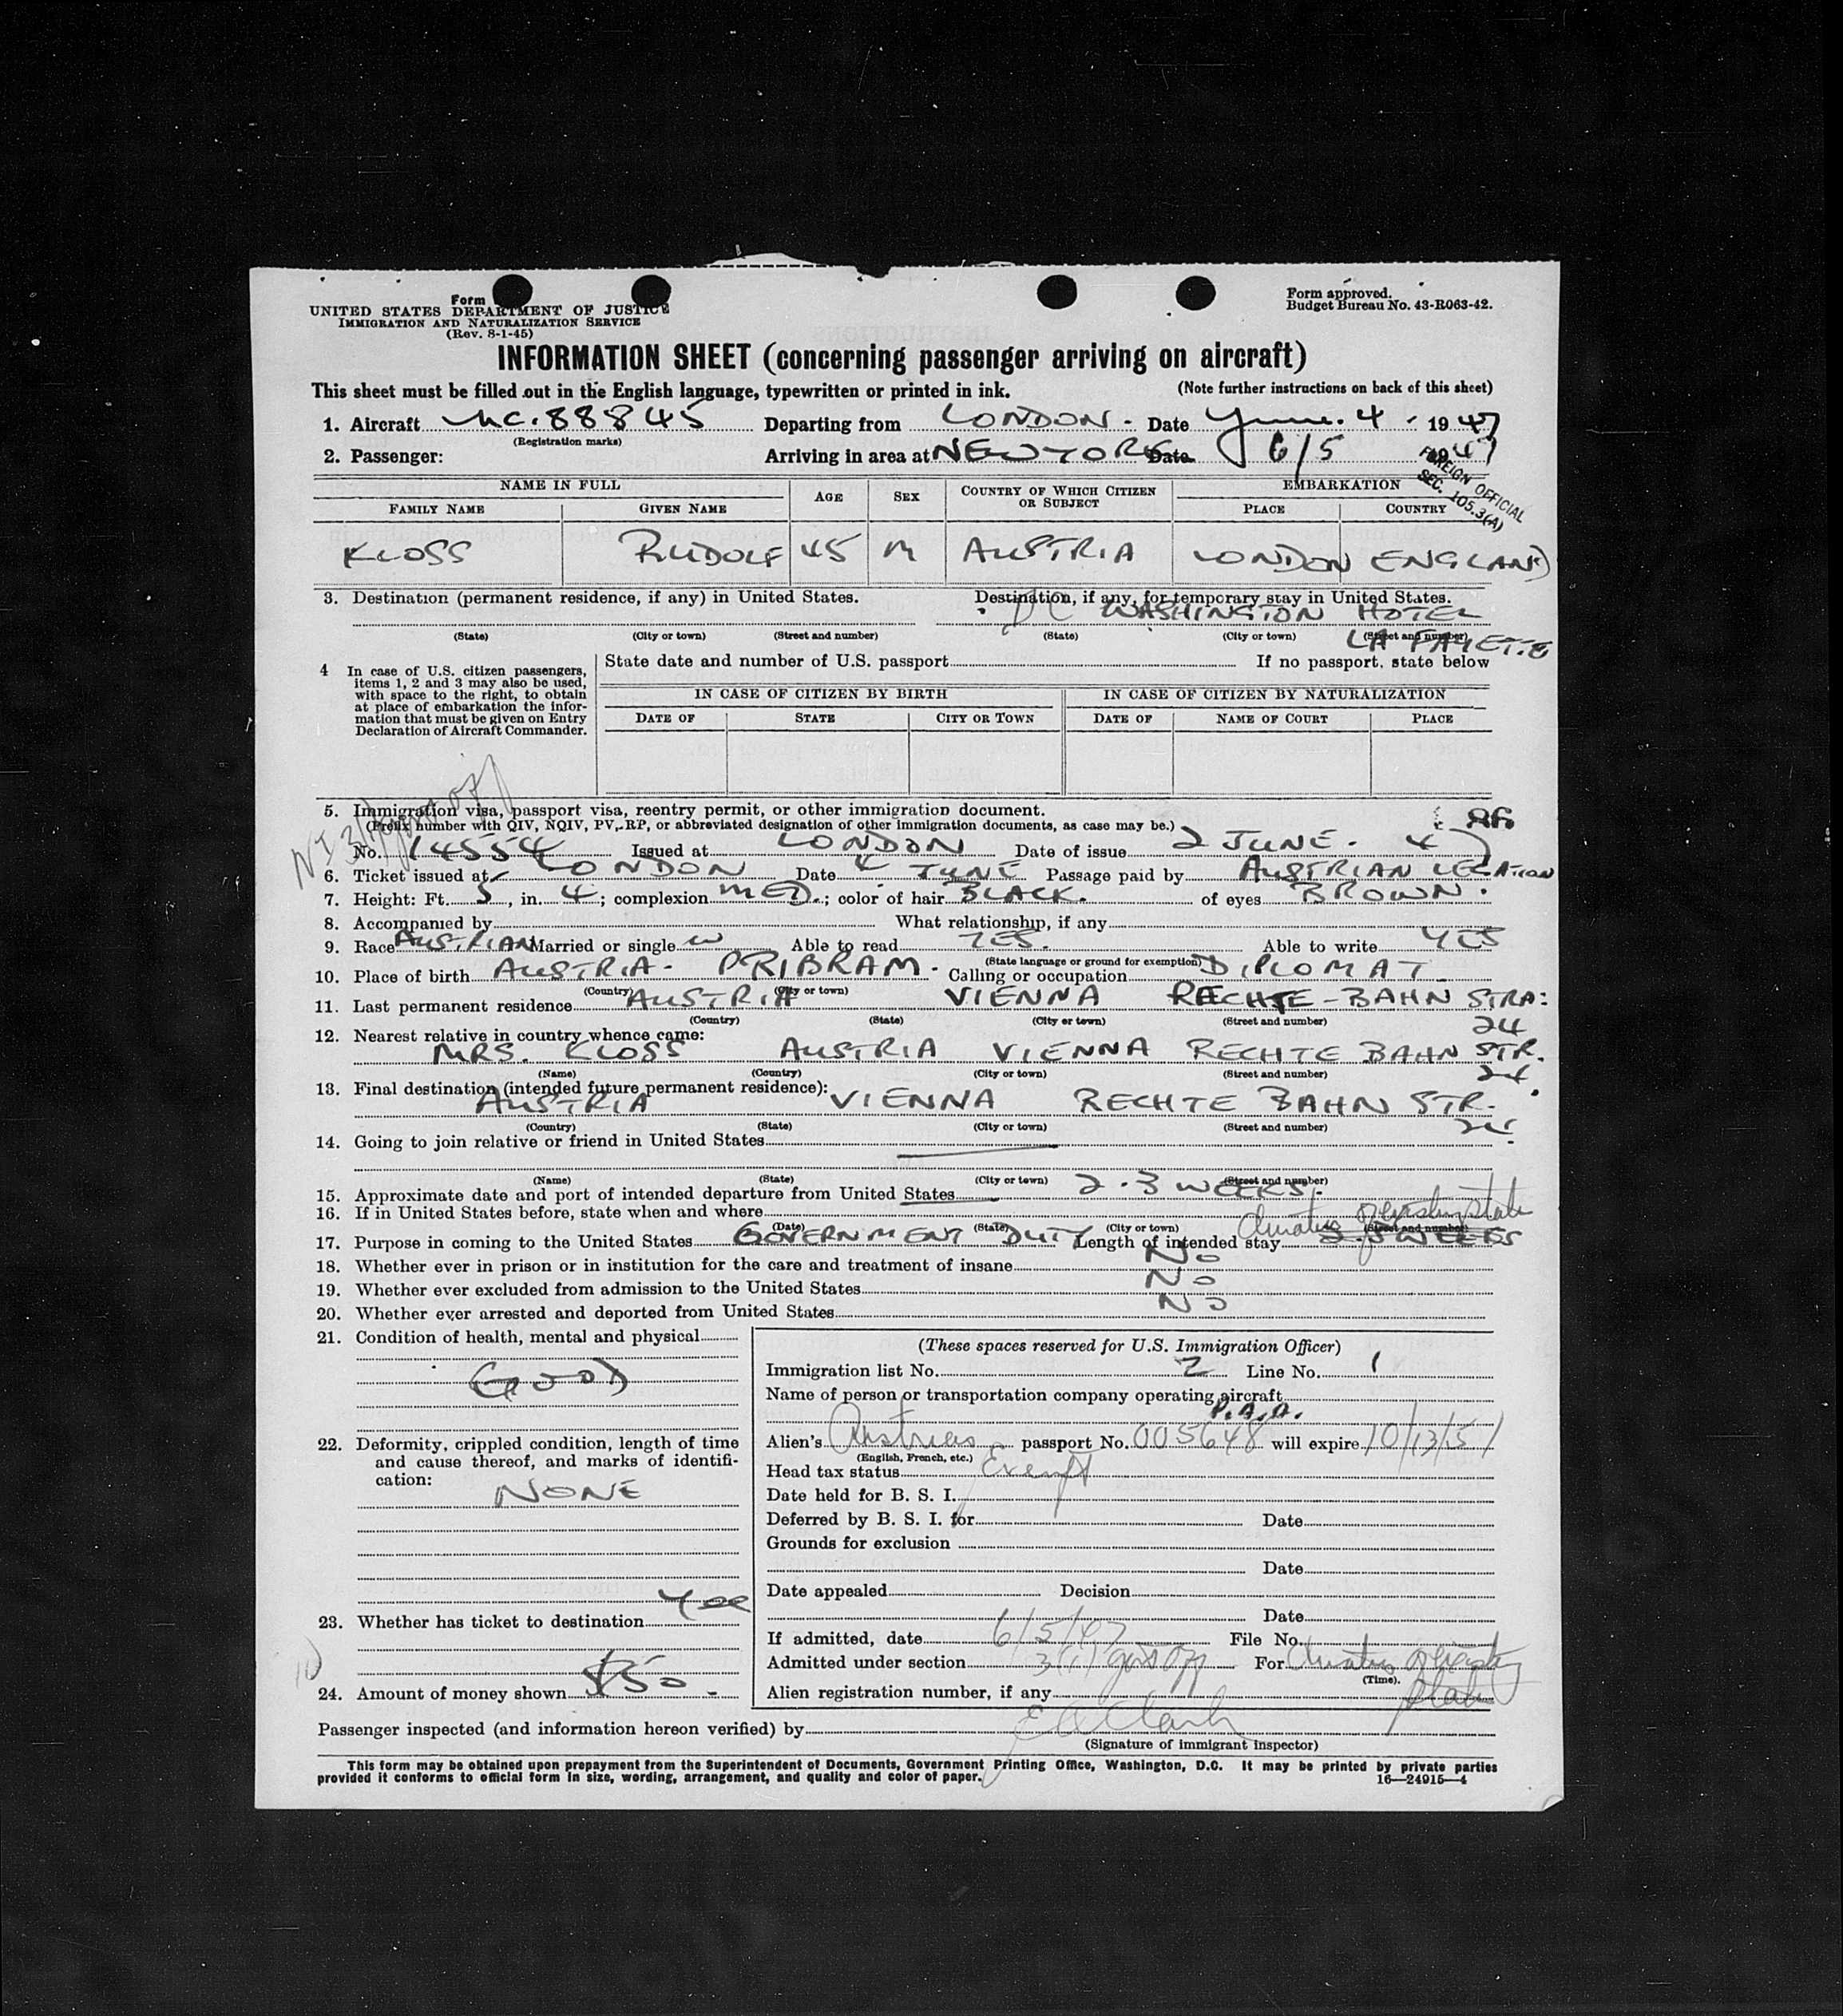 Form
UNITED STATES DEPARTMENT OF JUSTICE
IMMIGRATION AND NATURALIZATION SERVICE
(Rev. 8-1-45)
Form approved.
Budget Bureau No. 43-R063-42.
INFORMATION SHEET (concerning passenger arriving on aircraft)
This sheet must be filled out in the English language, typewritten or printed in ink. (Note further instructions on back of this sheet)
1. Aircraft NC.88845 Departing from LONDON. Date June. 4. 1947
(Registration marks)
2. Passenger: Arriving in area at NEW YORK Date 6/5 1947
FOREIGN OFFICIAL
SEC. 105.3(A)
NAME IN FULL AGE SEX COUNTRY OF WHICH CITIZEN OR SUBJECT EMBARKATION
FAMILY NAME GIVEN NAME PLACE COUNTRY
KLOSS RUDOLF 45 M AUSTRIA LONDON ENGLAND
3. Destination (permanent residence, if any) in United States. Destination, if any, for temporary stay in United States.
DC WASHINGTON HOTEL
(State) (City or town) (Street and number) (State) (City or town) (Street and number)
LA FAYETTE
4 In case of U.S. citizen passengers, items 1, 2 and 3 may also be used, with space to the right, to obtain at place of embarkation the information that must be given on Entry Declaration of Aircraft Commander.
State date and number of U.S. passport If no passport, state below
IN CASE OF CITIZEN BY BIRTH IN CASE OF CITIZEN BY NATURALIZATION
DATE OF STATE CITY OR TOWN DATE OF NAME OF COURT PLACE
5. Immigration visa, passport visa, reentry permit, or other immigration document.
(Prefix number with QIV, NQIV, PV, RP, or abbreviated designation of other immigration documents, as case may be.)
No. 14554 Issued at LONDON Date of issue 2 JUNE. 47
6. Ticket issued at LONDON Date 4 JUNE Passage paid by AUSTRIAN LEGATION
7. Height: Ft. 5, in. 4; complexion MED.; color of hair BLACK. of eyes BROWN.
8. Accompanied by What relationship, if any
9. Race AUSTRIAN Married or single W Able to read YES. Able to write YES
(State language or ground for exemption)
10. Place of birth AUSTRIA - PRIBRAM. Calling or occupation DIPLOMAT
(Country) (City or town)
11. Last permanent residence AUSTRIA VIENNA RECHTE-BAHN STRA:
(Country) (State) (City or town) (Street and number)
24
12. Nearest relative in country whence came:
MRS. KLOSS AUSTRIA VIENNA RECHTE BAHN STR.
(Name) (Country) (City or town) (Street and number)
24.
13. Final destination (intended future permanent residence):
AUSTRIA VIENNA RECHTE BAHN STR.
(Country) (State) (City or town) (Street and number)
24.
14. Going to join relative or friend in United States
(Name) (State) (City or town) (Street and number)
15. Approximate date and port of intended departure from United States 2.3 WEEKS.
16. If in United States before, state when and where
(Date) (State) (City or town) (Street and number)
17. Purpose in coming to the United States GOVERNMENT DUTY Length of intended stay 2.3 WEEKS
18. Whether ever in prison or in institution for the care and treatment of insane No
19. Whether ever excluded from admission to the United States No
20. Whether ever arrested and deported from United States No
21. Condition of health, mental and physical
GOOD
22. Deformity, crippled condition, length of time and cause thereof, and marks of identification:
NONE
23. Whether has ticket to destination Yes
24. Amount of money shown $50.
(These spaces reserved for U.S. Immigration Officer)
Immigration list No. 2 Line No. 1
Name of person or transportation company operating aircraft
P.A.A.
Alien's Austrian passport No. 005648 will expire 10/13/51
(English, French, etc.)
Head tax status Exempt
Date held for B. S. I.
Deferred by B. S. I. for Date
Grounds for exclusion
Date
Date appealed Decision
Date
If admitted, date 6/5/47 File No.
Admitted under section 3(1) For
(Time).
Alien registration number, if any
Passenger inspected (and information hereon verified) by E A Clark
(Signature of immigrant inspector)
This form may be obtained upon prepayment from the Superintendent of Documents, Government Printing Office, Washington, D.C. It may be printed by private parties
provided it conforms to official form in size, wording, arrangement, and quality and color of paper.
16—24915—4